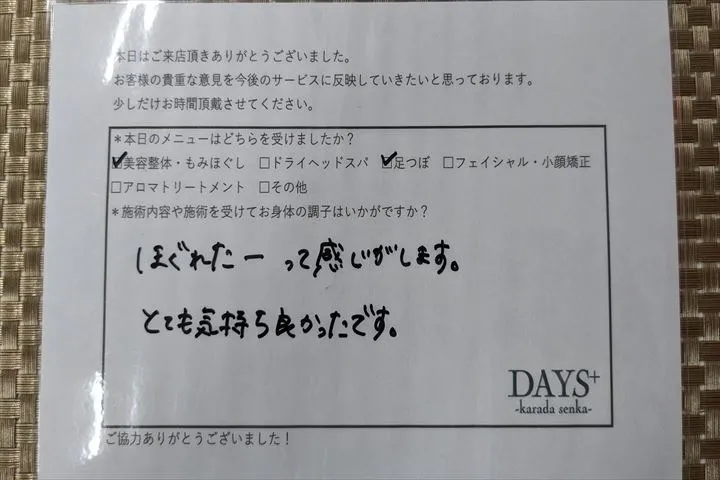 本日はご来店頂きありがとうございました。
お客様の貴重な意見を今後のサービスに反映していきたいと思っております。
少しだけお時間頂戴させてください。
*本日のメニューはどちらを受けましたか?
☑美容整体・もみほぐし □ドライヘッドスパ ☑足つぼ □フェイシャル・小顔矯正
□アロマトリートメント □その他
*施術内容や施術を受けてお身体の調子はいかがですか?
ほぐれたー って感じがします。
とても気持ち良かったです。
DAYS+
-karada senka-
ご協力ありがとうございました!